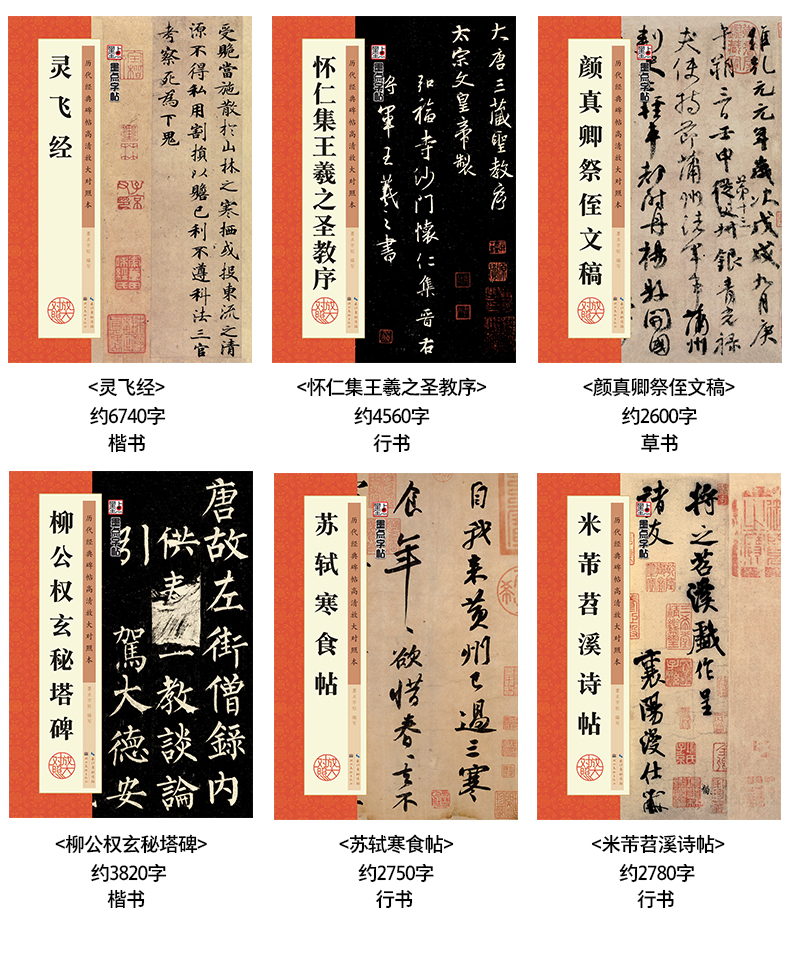 灵飞经
历代经典碑帖高清放大对照本
墨点字帖
受贶當施散於山林之寒栖或投東流之清
源不得私用割損以贍己利不遵科法三官
考察死為下鬼
怀仁集王羲之圣教序
历代经典碑帖高清放大对照本
墨点字帖
大唐三藏聖教序
太宗文皇帝製
弘福寺沙门懷仁集晉右
將軍王羲之書
颜真卿祭侄文稿
历代经典碑帖高清放大对照本
墨点字帖
維乾元元年歲次戊戌九月庚
午朔三日壬申第十三從父銀青光禄
夫使持節蒲州諸軍事蒲州
刺史上輕車都尉丹楊縣開國
<灵飞经>
约6740字
楷书
<怀仁集王羲之圣教序>
约4560字
行书
<颜真卿祭侄文稿>
约2600字
草书
柳公权玄秘塔碑
历代经典碑帖高清放大对照本
墨点字帖
唐故左街僧錄内
供奉一教談論
引駕大德安
苏轼寒食帖
历代经典碑帖高清放大对照本
墨点字帖
自我来黄州已過三寒
食年、欲惜春、去不
米芾苕溪诗帖
历代经典碑帖高清放大对照本
墨点字帖
将之苕溪戲作呈
诸友
襄陽漫仕黻
<柳公权玄秘塔碑>
约3820字
楷书
<苏轼寒食帖>
约2750字
行书
<米芾苕溪诗帖>
约2780字
行书